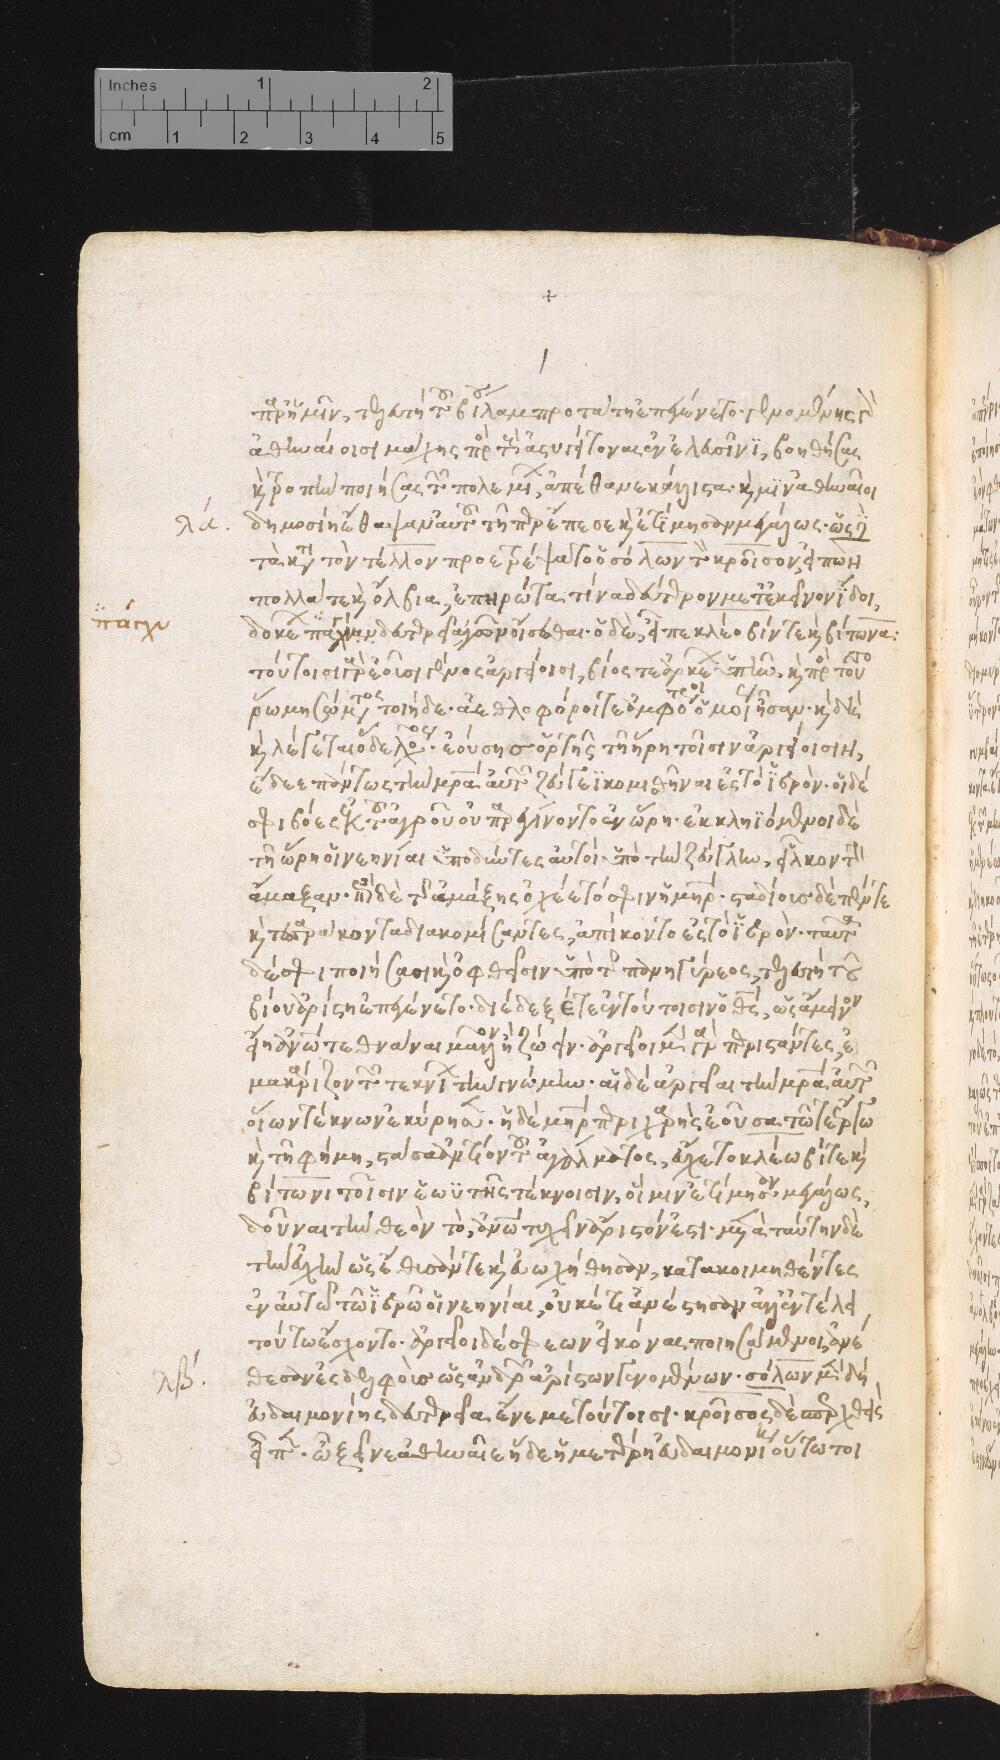 Inches 1 2
cm 1 2 3 4 5
+
παρ' ἡμῖν, τελευτὴ τοῦ βίου λαμπροτάτη ἐπεγένετο· γενομένης γὰρ
ἀθηναίοισι μάχης πρὸς τοὺς ἀστυγείτονας ἐν ἐλευσῖνι, βοηθήσας
καὶ τροπὴν ποιήσας τῶν πολεμίων, ἀπέθανε κάλλιστα· καί μιν ἀθηναῖοι
λα.
δημοσίη ἔθαψαν αὐτοῦ τῆπερ ἔπεσε καὶ ἐτίμησαν μεγάλως· ὡς δὲ
τὰ κατὰ τὸν τέλλον προετρέψατο ὁ σόλων τὸν κροῖσον εἴπας
πολλά τε καὶ ὄλβια, ἐπηρώτα τίνα δεύτερον μετ' ἐκεῖνον ἴδοι,
πάγχυ
δοκέων πάγχυ δευτερεῖα γῶν οἴσεσθαι· ὁ δὲ, εἶπε κλέοβίν τε καὶ βίτωνα:
τούτοισι γὰρ ἐοῦσι γένος ἀργείοισι, βίος τε ἀρκέων ὑπῆν, καὶ πρὸς τούτῳ
ῥώμη σώματος τοιήδε· ἀεθλοφόροι τε ἀμφότεροι ὁμοίως ἦσαν· καὶ δὴ
καὶ λέγεται ὅδε λόγος· ἐούσης ὁρτῆς τῇ ἥρη τοῖσιν ἀργείοισιν,
ἔδεε πάντως τὴν μητέρα αὐτῶν ζεύγεϊ κομισθῆναι ἐς τὸ ἱερόν· οἱ δέ
σφι βόες ἐκ τοῦ ἀγροῦ οὐ παρεγίνοντο ἐν ὥρη· ἐκκληϊόμενοι δὲ
τῇ ὥρη οἱ νεηνίαι ὑποδύντες αὐτοὶ ὑπὸ τὴν ζεύγλην, εἷλκον τὴν
ἅμαξαν· ἐπὶ δὲ τῆς ἁμάξης ὀχέετό σφιν ἡ μήτηρ· σταδίους δὲ πέντε
καὶ τεσσαράκοντα διακομίσαντες, ἀπίκοντο ἐς τὸ ἱερόν· ταῦτα
δέ σφι ποιήσασι καὶ ὀφθεῖσιν ὑπὸ τῆς πανηγύρεος, τελευτὴ τοῦ
βίου ἀρίστη ἐπεγένετο· διέδεξέ τε ἐν τούτοισιν ὁ θεός, ὡς ἄμεινον
εἴη ἀνθρώπῳ τεθνάναι μᾶλλον ἢ ζώειν· ἀργεῖοι μὲν γὰρ περιστάντες, ἐ
μακάριζον τῶν τεκνέων τὴν γνώμην· αἱ δὲ ἀργεῖαι τὴν μητέρα αὐτῶν
οἵων τέκνων ἐκύρησε· ἡ δὲ μήτηρ περιχαρὴς ἐοῦσα τῷ τε ἔργῳ
καὶ τῇ φήμη, στᾶσα ἀντίον τοῦ ἀγάλματος, εὔχετο κλεόβι τε καὶ
βίτωνι τοῖσιν ἑωϋτῆς τέκνοισιν, οἵ μιν ἐτίμησαν μεγάλως,
δοῦναι τὴν θεὸν τὸ, ἀνθρώπῳ τυχεῖν ἄριστόν ἐστι· μετὰ ταύτην δὲ
τὴν εὐχὴν ὡς ἔθυσάν τε καὶ εὐωχήθησαν, κατακοιμηθέντες
ἐν αὐτῷ τῷ ἱερῷ οἱ νεηνίαι, οὐκέτι ἀνέστησαν ἀλλ' ἐν τέλεϊ
τούτῳ ἔσχοντο· ἀργεῖοι δέ σφεων εἰκόνας ποιησάμενοι, ἀνέ
λβ.
θεσαν ἐς δελφοὺς ὡς ἀνδρῶν ἀρίστων γενομένων· σόλων μὲν δὴ
εὐδαιμονίης δευτερεῖα ἔνεμε τούτοισι· κροῖσος δὲ σπερχθεὶς
εἶπε· ὦ ξεῖνε ἀθηναῖε ἡ δὲ ἡμετέρη εὐδαιμονίη οὕτω τοι